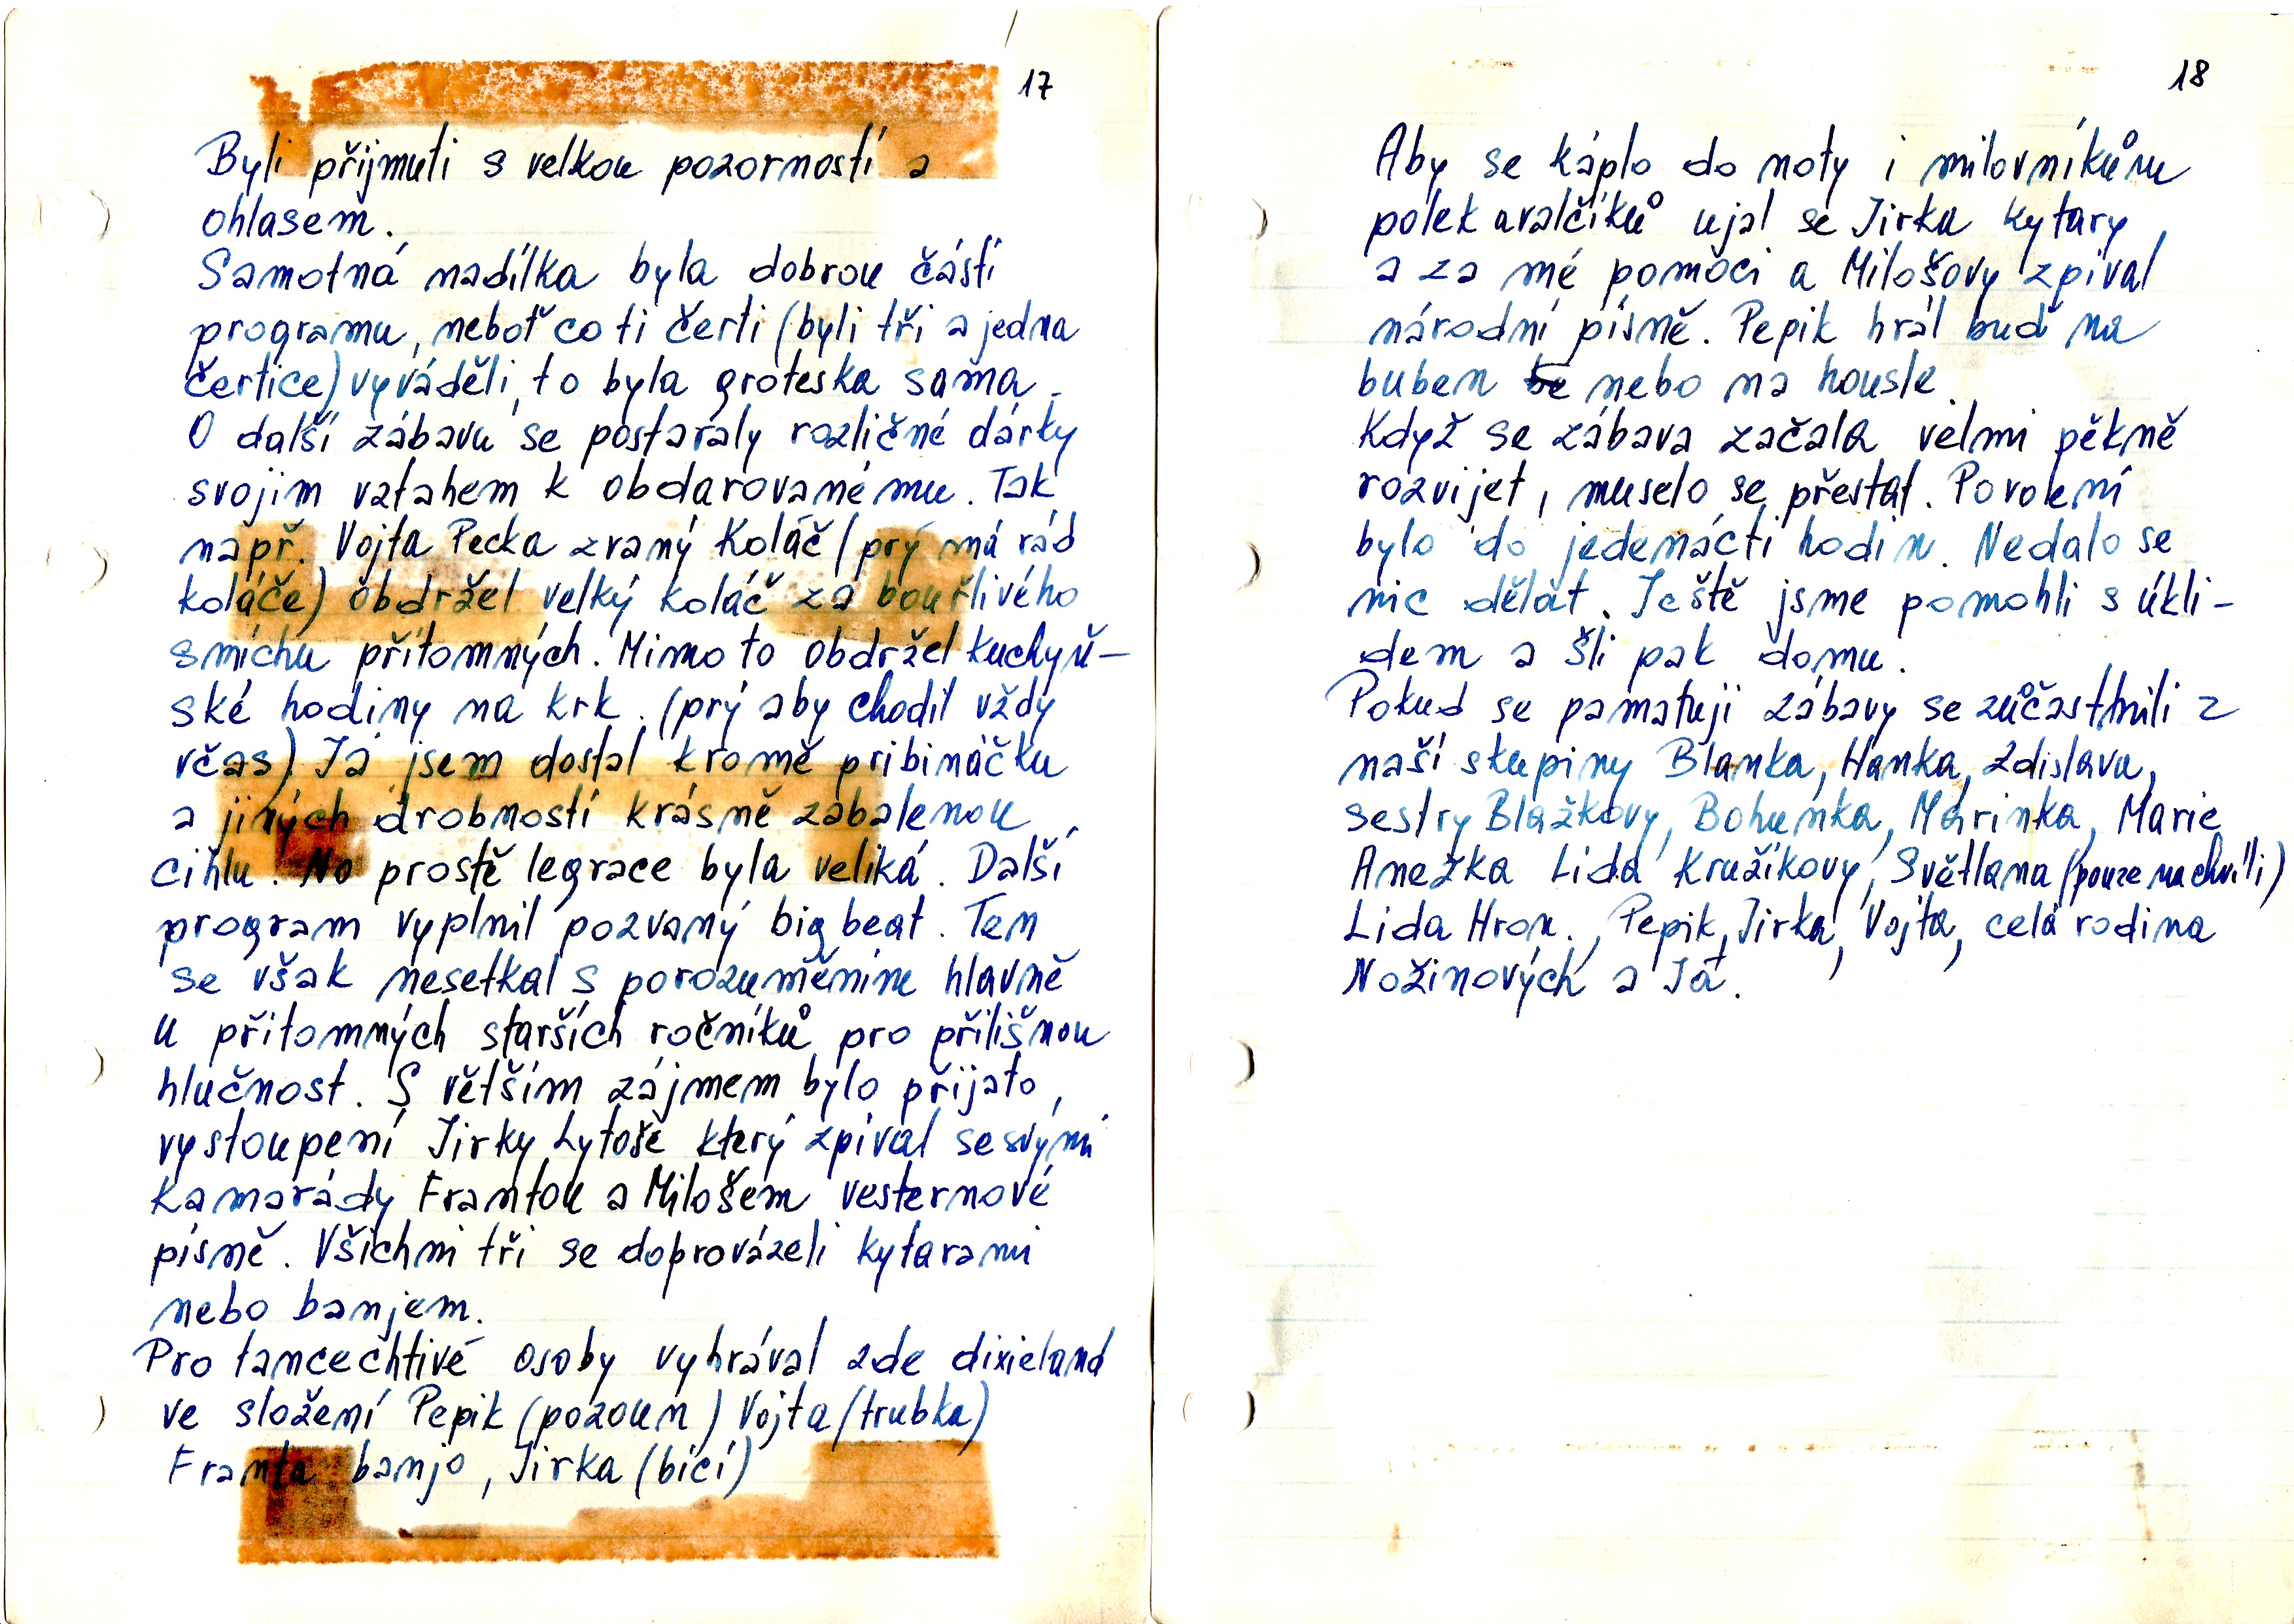 17
Byli přijmuti s velkou pozorností a
ohlasem.
Samotná nadílka byla dobrou částí
programu, neboť co ti čerti (byli tři a jedna
čertice) vyváděli, to byla groteska sama.
O další zábavu se postaraly rozličné dárky
svojim vztahem k obdarovanému. Tak
např. Vojta Pecka zvaný Koláč (prý má rád
koláče) obdržel velký koláč za bouřlivého
smíchu přítomných. Mimo to obdržel kuchyň-
ské hodiny na krk. (prý aby chodil vždy
včas). Já jsem dostal kromě pribináčku
a jiných drobností krásně zabalenou
cihlu. No prostě legrace byla veliká. Další
program vyplnil pozvaný big beat. Ten
se však nesetkal s porozuměním hlavně
u přítomných starších ročníků pro přílišnou
hlučnost. S větším zájmem bylo přijato,
vystoupení Jirky Lytoše který zpíval se svými
kamarády Frantou a Milošem vesternové
písně. Všichni tři se doprovázeli kytarami
nebo banjem.
Pro tancechtivé osoby vyhrával zde dixieland
ve složení Pepik (pozoun) Vojta (trubka)
Franta banjo, Jirka (bicí)
18
Aby se káplo do noty i milovníkům
polek a valčíků ujal se Jirka kytary
a za mé pomoci a Milošovy zpíval
národní písně. Pepik hrál buď na
buben be nebo na housle.
Když se zábava začala velmi pěkně
rozvijet, muselo se přestat. Povolení
bylo do jedenácti hodin. Nedalo se
nic dělat. Ještě jsme pomohli s úkli-
dem a šli pak domu.
Pokud se pamatuji zábavy se zůčastnili z
naší skupiny Blanka, Hanka, Zdislava,
sestry Blažkovy, Bohunka, Marinka, Marie
Anežka Lida Kružíkovy, Světlana (pouze na chvíli)
Lida Hron., Pepik, Jirka, Vojta, celá rodina
Nožinových a Já.